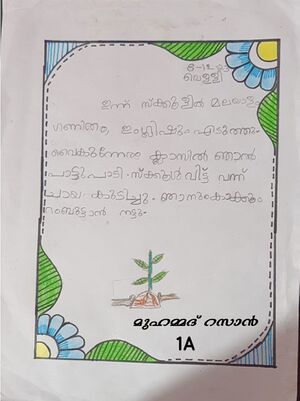 8-12-23
വെള്ളി
ഇന്ന് സ്ക്കൂളിൽ മലയാളം
ഗണിതം, ഇംഗ്ലീഷും എടുത്തു.
വൈകുന്നേരം ക്ലാസിൽ ഞാൻ
പാട്ടു പാടി. സ്ക്കൂൾ വിട്ട് വന്ന്
ചായ കുടിച്ചു. ഞാനും
റംബൂട്ടാൻ നട്ടു.
മുഹമ്മദ് റസാൻ
1A